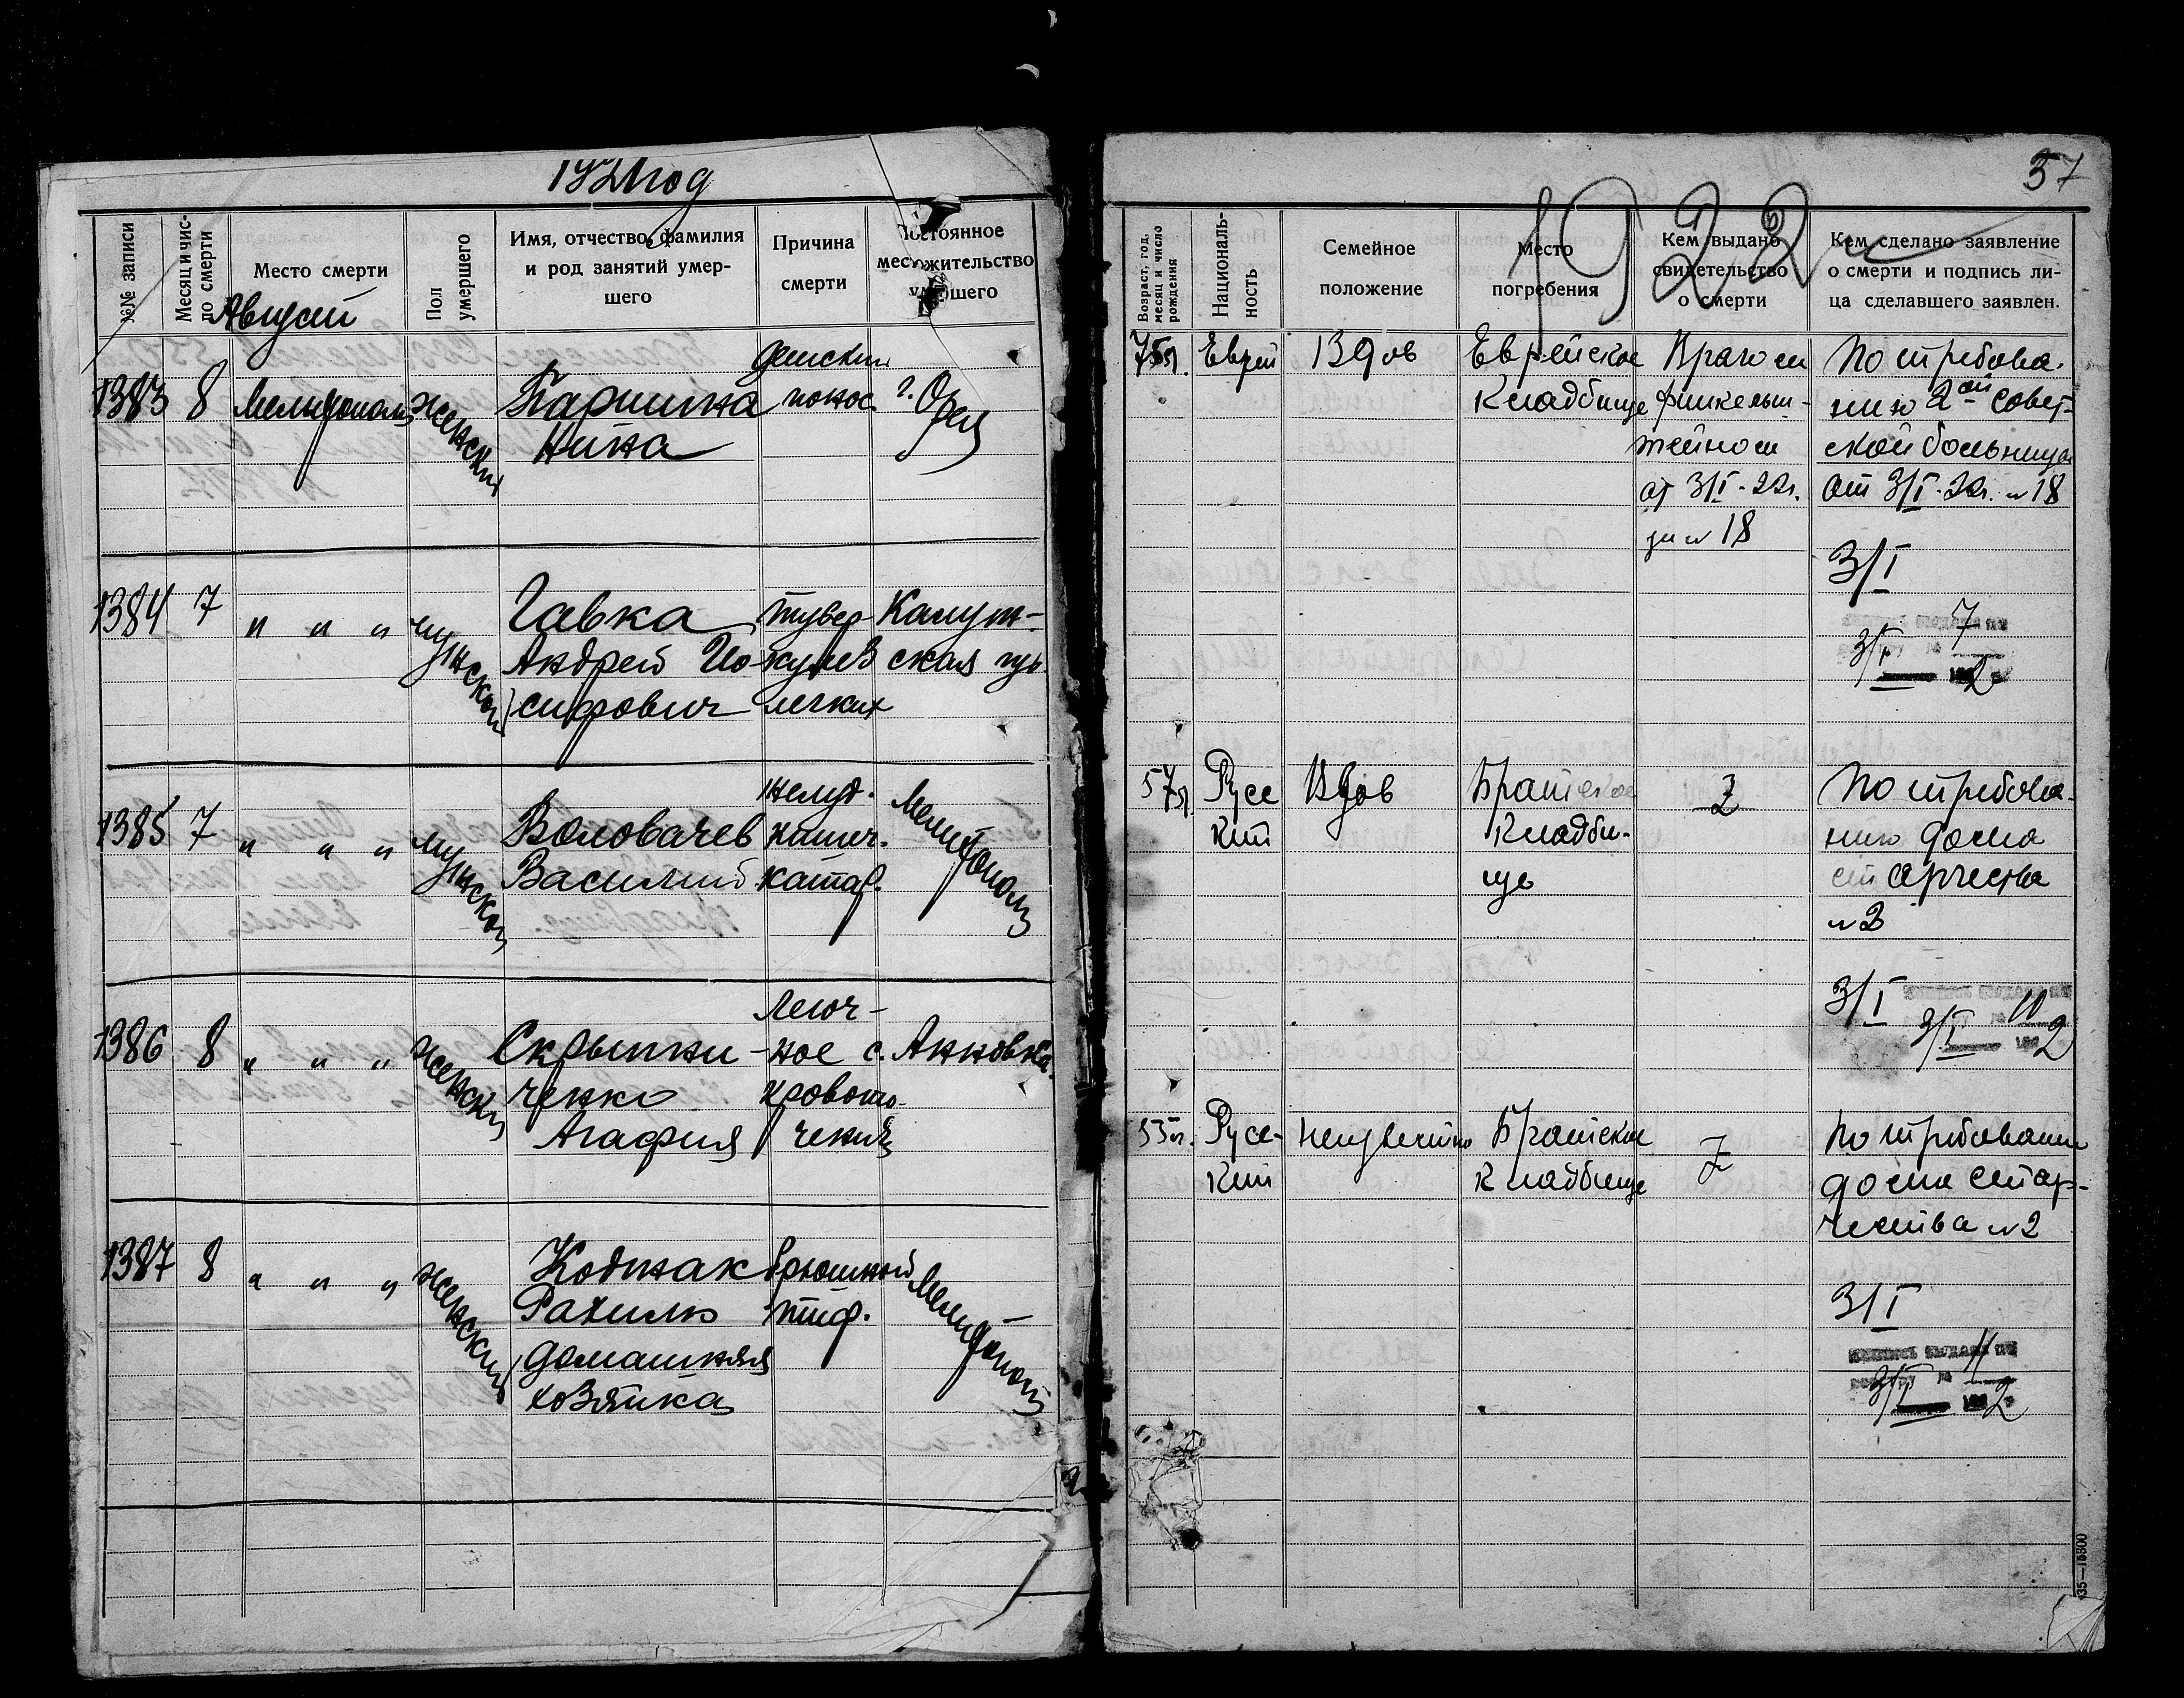 1921 год
№№ записи
Месяц и чис-
ло смерти
Место смерти
Август
Пол
умершего
Имя, отчество, фамилия
и род занятий умер-
шего
Причина
смерти
Постоянное
местожительство
умершего
1383 8 Мелитополь женский
Паршина
Нина
детский
понос
г. Орел
1384 7 " " " мужской
Гавка
Андрей Ио-
сифович
тубер-
кулез
легких
Калуж-
ская губ.
1385 7 " " " мужской
Воловачев
Василий
желуд.
кишеч.
катар.
Мелитополь
1386 8 " " " женский
Скрыпни-
ченко
Агафия
Легоч-
ное
кровоте-
чение
с. Анновка.
1387 8 " " " женский
Коджак
Рахиль
домашняя
хозяйка
брюшной
тиф.
Мелитополь
37
1922
Возраст, год,
месяц и число
рождения
Националь-
ность
Семейное
положение
Место
погребения
Кем выдано
свидетельство
о смерти
Кем сделано заявление
о смерти и подпись ли-
ца сделавшего заявлен.
75л. Еврей Вдов
Еврейское
Кладбище
Врачом
Финкельш-
тейном
от 3/I-22г.
за № 18
По требова-
нию 2ой совет-
ской больницы
от 3/I-22г. №18
3/I
7
3/I
2
57л.
Русс
кий
Вдов
Братское
Кладби-
ще
По требова-
нию дома
старчества
3/I
10
3/I 2
Русс-
кий
неизвестно
Братское
Кладбище
По требованию
дома стар-
чества №2
3/I
11
3/I
2
35—15800